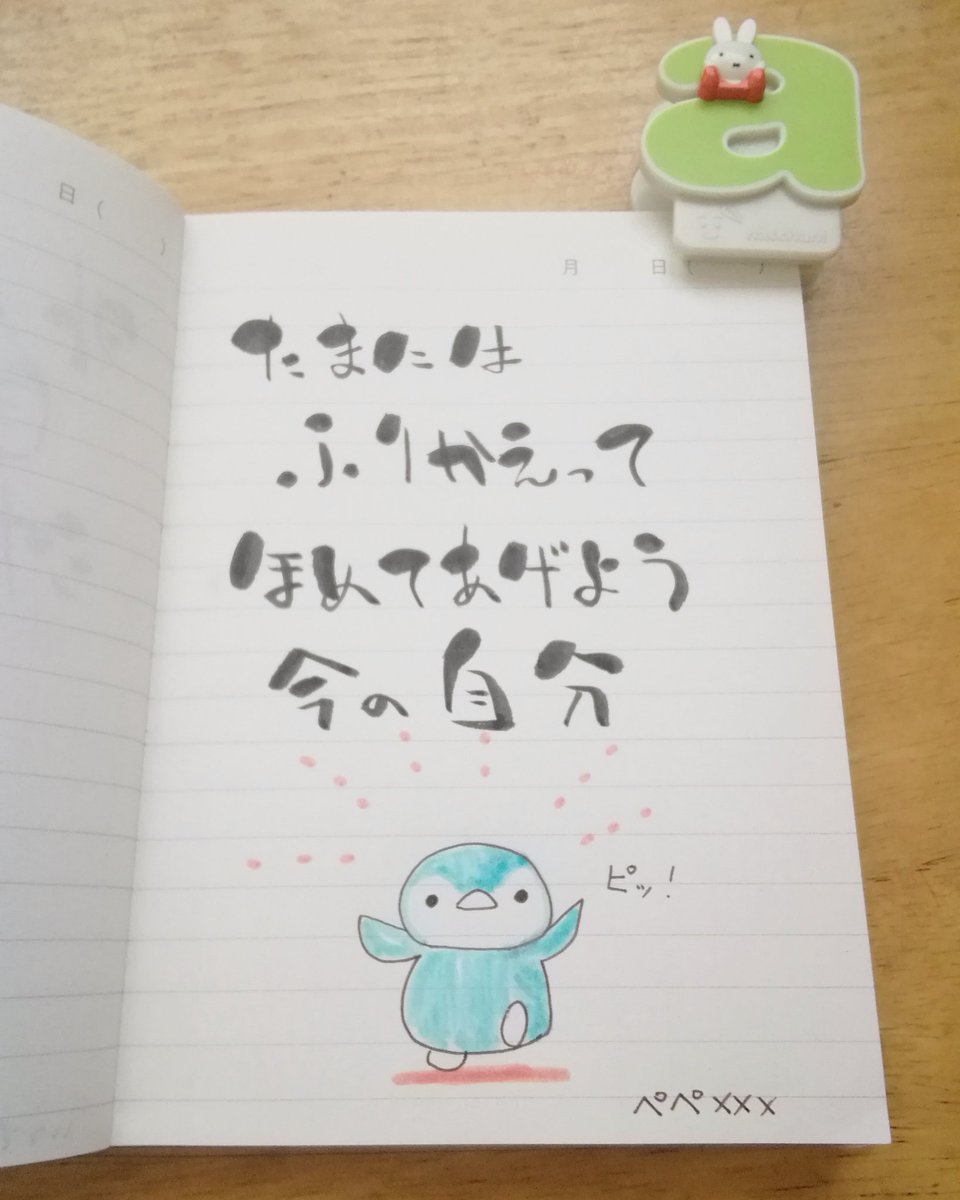 日（　）
月　日（　）
たまには
ふりかえって
ほめてあげよう
今の自分
ピッ！
ペペxxx
a